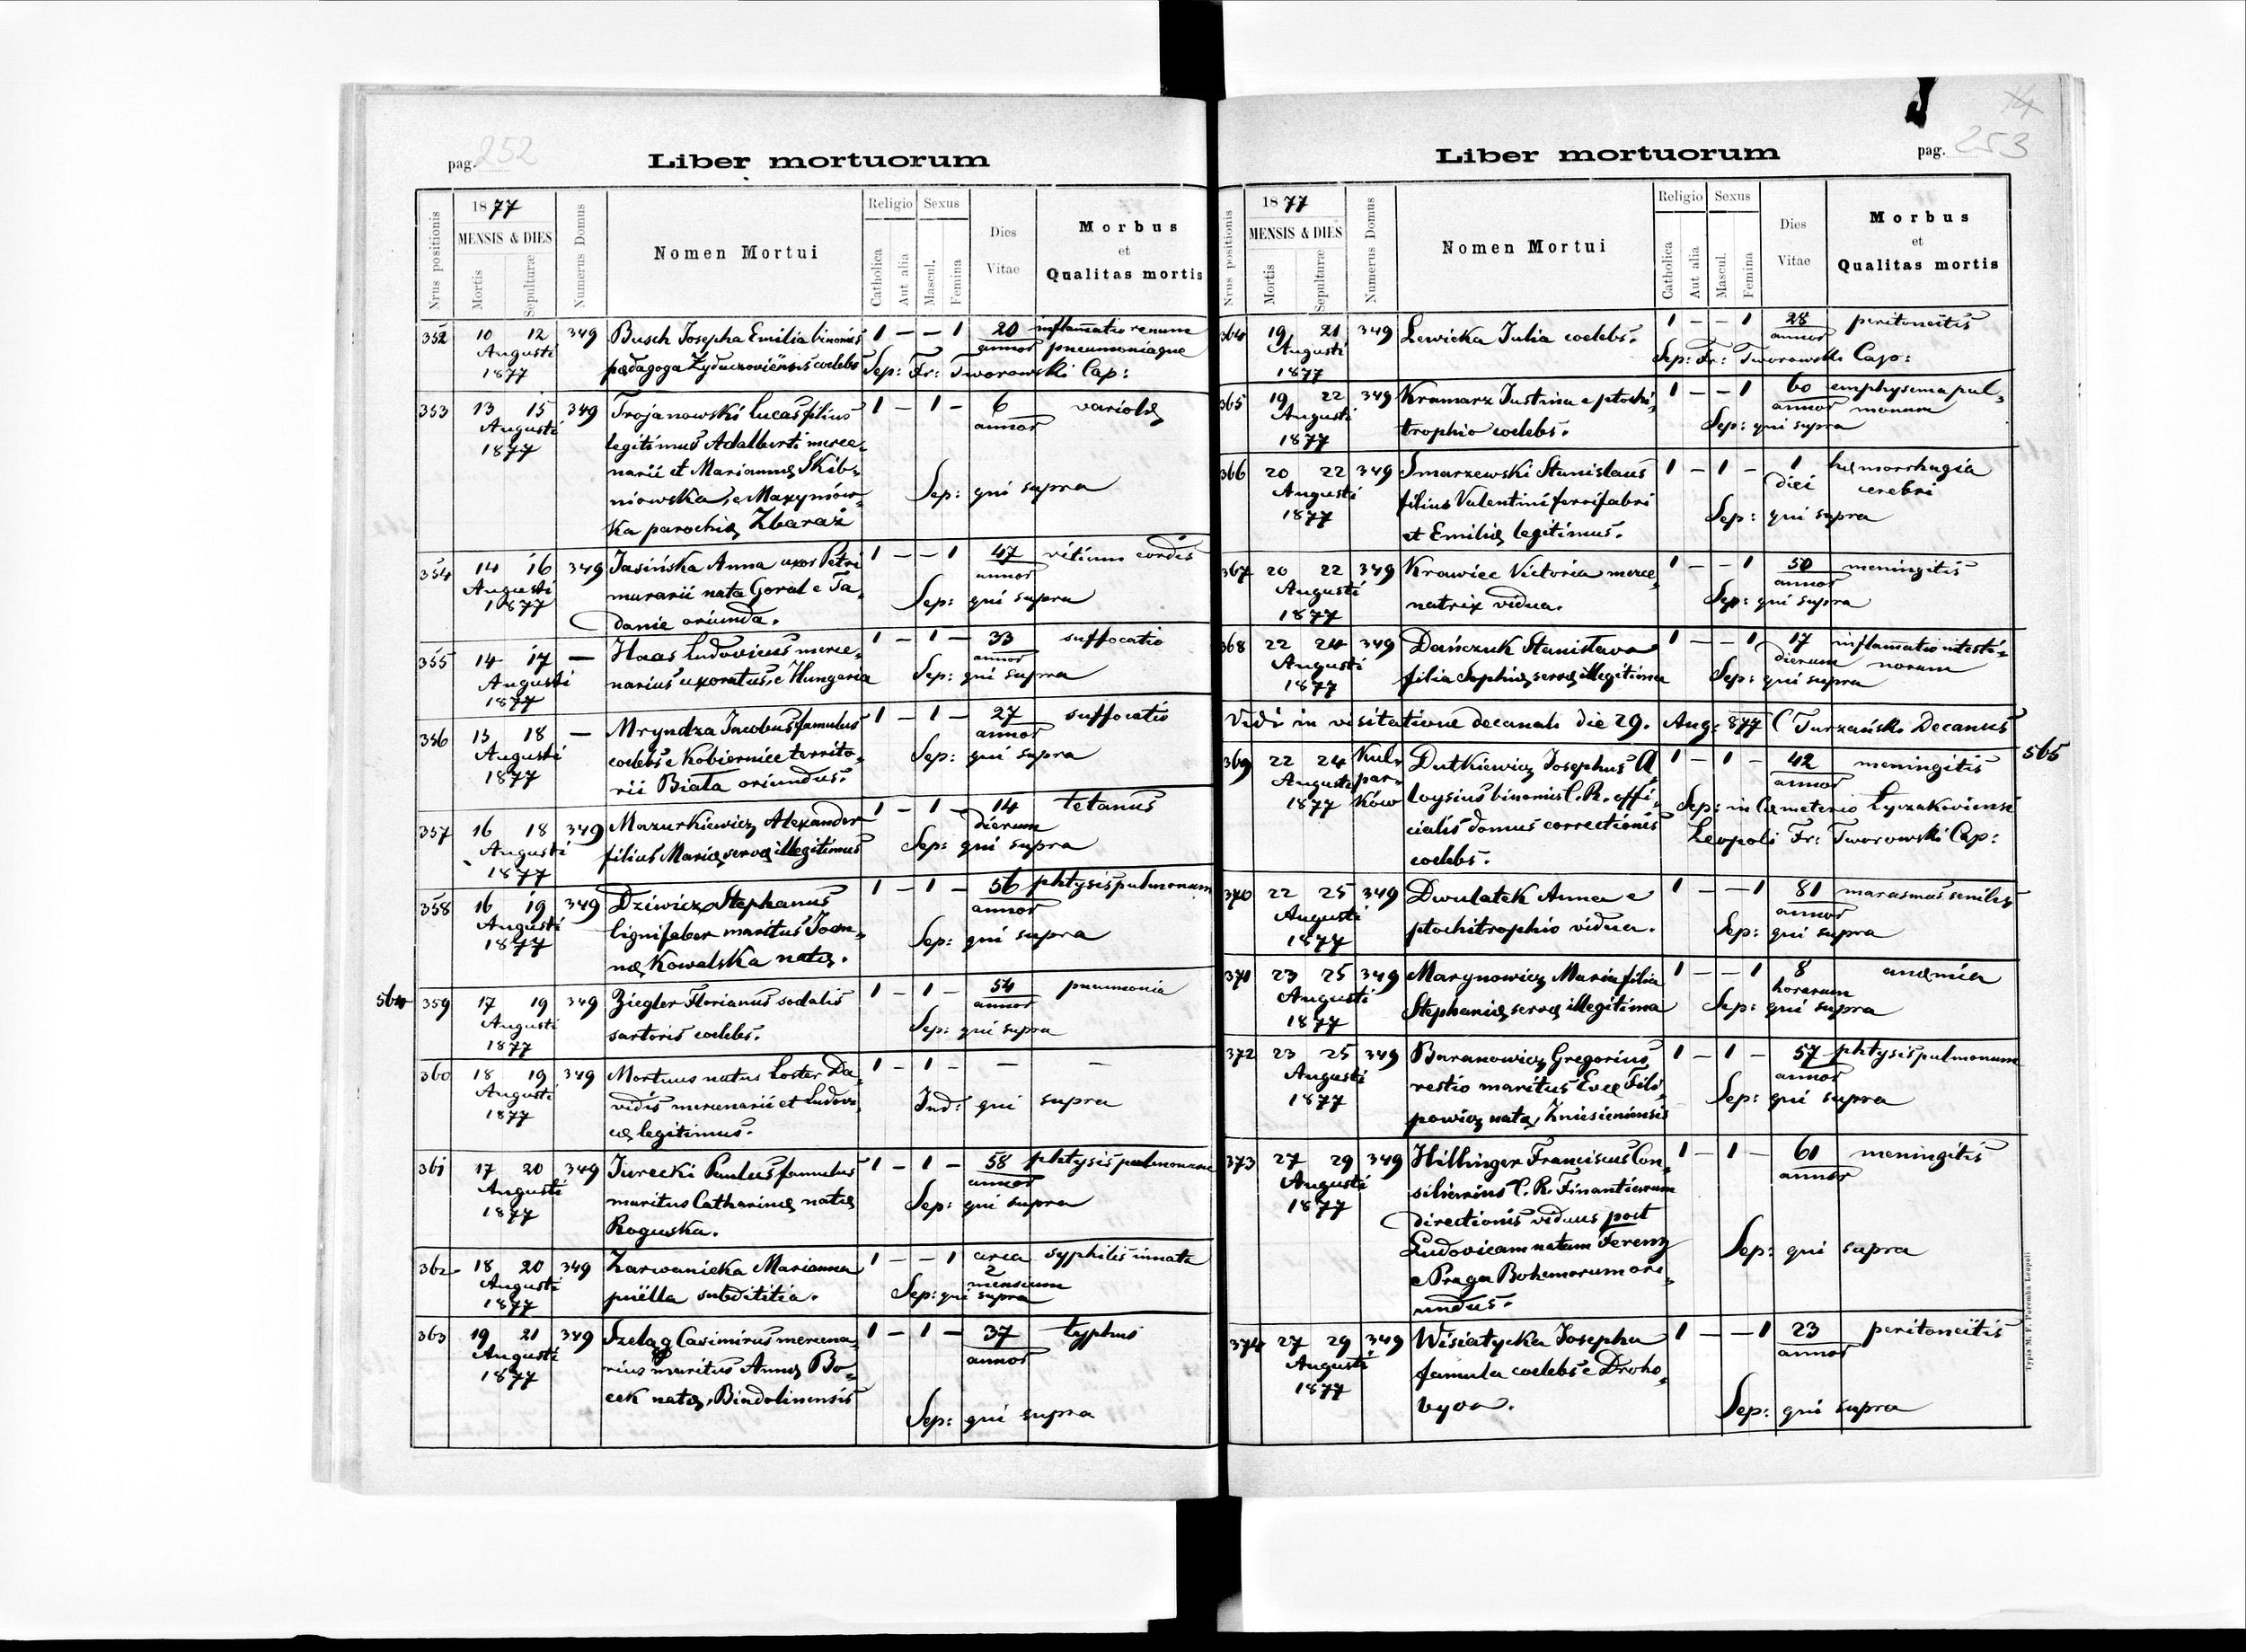 pag. 252
Liber mortuorum
Nrus positionis
1877
MENSIS & DIES
Mortis
Sepulturæ
Numerus Domus
Nomen Mortui
Religio
Catholica
Aut alia
Sexus
Mascul.
Femina
Dies
Vitae
Morbus
et
Qualitas mortis
352 10 12 349 Busch Josepha Emilia binomis 1 – – 1 20 inflam̄atio renum
Augusti pædagoga Żydaczoviensis coelebs annor pneumoniaque
1877 Sep: Fr: Tworowski Cap:
353 13 15 349 Trojanowski Lucas filius 1 – 1 – 6 variolæ
Augusti legitimus Adalberti merce- annor
1877 narii et Mariannæ Skib-
niowska, e Maxymów- Sep: qui supra
ka parochiæ Zbaraż
354 14 16 349 Jasińska Anna uxor Petri 1 – – 1 47 vitium cordis
Augusti murarii nata Goral e Ta- annor
1877 danie oriunda. Sep: qui supra
355 14 17 – Haas Ludovicus merce- 1 – 1 – 33 suffocatio
Augusti narius uxoratus, e Hungaria annor
1877 Sep: qui supra
356 15 18 – Mryndza Jacobus famulus 1 – 1 – 27 suffocatio
Augusti coelebs e Kobiernice territo- annor
1877 rii Biała oriundus. Sep: qui supra
357 16 18 349 Mazurkiewicz Alexander 1 – 1 – 14 tetanus
Augusti filius Mariæ servæ illegitimus dierum
1877 Sep: qui supra
358 16 19 349 Dziwicz Stephanus 1 – 1 – 56 phtysis pulmonum
Augusti lignifaber maritus Joan- annor
1877 næ Kowalska natæ. Sep: qui supra
564 359 17 19 349 Ziegler Florianus sodalis 1 – 1 – 54 pneumonia
Augusti sartoris coelebs. annor
1877 Sep: qui supra
360 18 19 349 Mortuus natus Loster Da- 1 – 1 – – –
Augusti vidis mercenarii et Ludovi-
1877 cæ legitimus. Ind: qui supra
361 17 20 349 Jurecki Paulus famulus 1 – 1 – 58 phtysis pulmonum
Augusti maritus Catharinæ natæ annor
1877 Roguska. Sep: qui supra
362 18 20 349 Zarwanicka Marianna 1 – – 1 circa syphilis innata
Augusti puella subdititia. 2 mensium
1877 Sep: qui supra
363 19 21 349 Szeląg Casimirus mercena- 1 – 1 – 37 typhus
Augusti rius maritus Annæ Bo- annor
1877 cek natæ, Biadolinensis
Sep: qui supra
pag. 253
Liber mortuorum
Nrus positionis
1877
MENSIS & DIES
Mortis
Sepulturæ
Numerus Domus
Nomen Mortui
Religio
Catholica
Aut alia
Sexus
Mascul.
Femina
Dies
Vitae
Morbus
et
Qualitas mortis
364 19 21 349 Lewicka Julia coelebs. 1 – – 1 28 peritoneitis
Augusti annor
1877 Sep: Fr: Tworowski Cap:
365 19 22 349 Kramarz Justina e ptochi- 1 – – 1 60 emphysema pul-
Augusti trophio coelebs. annor monum
1877 Sep: qui supra
366 20 22 349 Smarzewski Stanislaus 1 – 1 – 1 hæmorrhagia
Augusti filius Valentini ferrifabri diei cerebri
1877 et Emiliæ legitimus. Sep: qui supra
367 20 22 349 Krawiec Victoria merce- 1 – – 1 50 meningitis
Augusti natrix vidua. annor
1877 Sep: qui supra
368 22 24 349 Dańczuk Stanislava 1 – – 1 17 inflam̄atio intesti-
Augusti filia Sophiæ servæ illegitima dierum norum
1877 Sep: qui supra
Vidi in visitatione decanali die 29. Aug: 877 Turzański Decanus
369 22 24 Kul- Dutkiewicz Josephus A- 1 – 1 – 42 meningitis 565
Augusti par- loysius binomis C.R. offi- annor
1877 ków cialis domus correctionis Sep: in Cæmeterio Łyczakoviensi
coelebs. Leopoli Fr: Tworowski Cap:
370 22 25 349 Dwulatek Anna e 1 – – 1 81 marasmus senilis
Augusti ptochitrophio vidua. annor
1877 Sep: qui supra
371 23 25 349 Marynowicz Maria filia 1 – – 1 8 anæmia
Augusti Stephaniæ servæ illegitima horarum
1877 Sep: qui supra
372 23 25 349 Baranowicz Gregorius 1 – 1 – 57 phtysis pulmonum
Augusti restio maritus Evæ Fili- annor
1877 powicz natæ, Zniesieniensis Sep: qui supra
373 27 29 349 Hillinger Franciscus Con- 1 – 1 – 61 meningitis
Augusti siliarius C.R. Finantiarum annor
1877 directionis viduus post
Ludovicam natam Ferenz Sep: qui supra
e Praga Bohemorum ori-
undus.
374 27 29 349 Wisiatycka Josepha 1 – – 1 23 peritoneitis
Augusti famula coelebs e Droho- annor
1877 byva. Sep: qui supra
Typis M. F. Poremba Leopoli